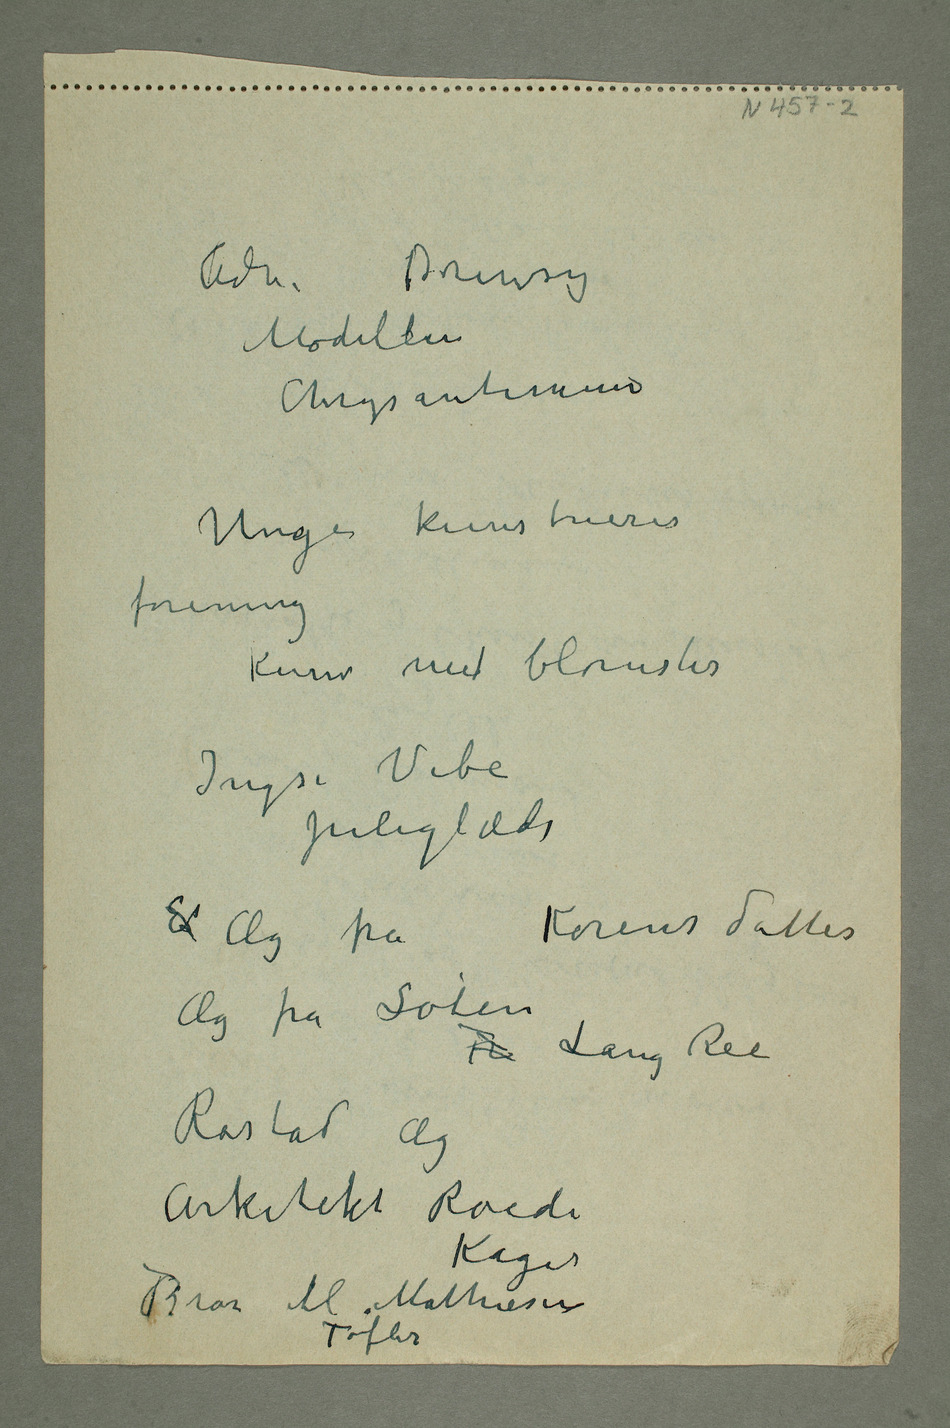 N 457-2
Adr. Brewsy
Modellen
Chrysantemum
Unge kunstneres
forening
Kurv med blomster
Ingse Vibe
juleglæde
Æg fra Korens datter
Æg fra Soten
Lang Ree
Rastad Æg
Arkitekt Roede
Kager
Bror M. Mathiesen
Tøfler